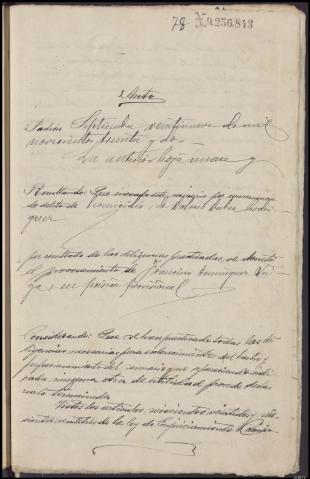 78 9.256.843
Auto
Padrón Septiembre veintinueve de mil
novecientos treinta y dos
La anterior hoja unase y
Resultando: Que incoado este sumario por
de delito de homicidio, de Dolores
por resultado de las diligencias practicadas, se decretó
el procesamiento de Francisco Dominguez
en prisión provisional
Considerando: Que se han practicado todas las di-
ligencias necesarias para esclarecimiento del hecho y
perfeccionamiento del sumario que apareciendo indi-
cada ninguna otra de utilidad procede decla-
rarlo terminado
Vistos los artículos seiscientos veintidos y seis-
cientos veintitres de la ley de Enjuiciamiento